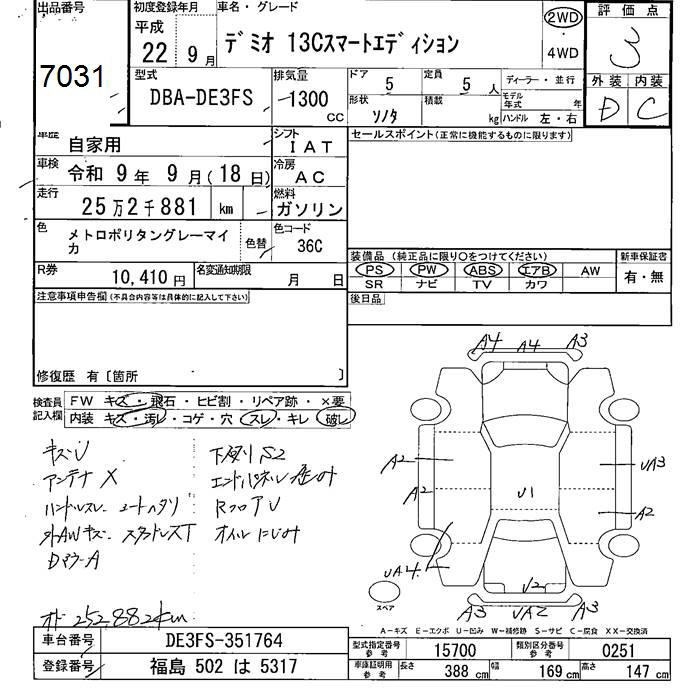 出品番号
7031
初度登録年月
平成
22 9 月
車名・グレード
デミオ 13Cスマートエディション
2WD
・
4WD
評価点
3
外装 内装
D C
型式
DBA-DE3FS
排気量
1300
CC
ドア
5
定員
5 人
ディーラー・並行
形状
ソノタ
積載
kg
モデル年式 年
ハンドル 左・右
車歴
自家用
シフト
IAT
車検
令和 9 年 9 月 ( 18 日)
冷房
AC
走行
25 万 2 千 881 km
燃料
ガソリン
色
メトロポリタングレーマイカ
色替
色コード
36C
R券
10,410 円
名変通知期限
月 日
セールスポイント(正常に機能するものに限ります)
装備品 (純正品に限り〇をつけてください)
PS PW ABS エアB AW
SR ナビ TV カワ
新車保証書
有・無
後日品
注意事項申告欄(不具合内容等は具体的に記入して下さい)
修復歴 有〔箇所 〕
検査員記入欄
FW キズ・飛石・ヒビ割・リペア跡・×要
内装 キズ・汚れ・コゲ・穴・スレ・キレ・破レ
キズU
下廻リS2
アンテナ X
ハンドルスレ
RフロアU
オイルにじみ
外AWキズ スタッドレスT
DミラーA
オド 252,882km
A4 A4 A3
A2 UA3
A2 U1 A2
UA4 U2
A3 UA2 A3
スペア
A−キズ E−エクボ U−凹み W−補修跡 S−サビ C−腐食 XX−交換済
車台番号 DE3FS-351764
登録番号 福島 502 は 5317
型式指定番号 参考 15700
類別区分番号 参考 0251
車庫証明用 参考 長さ 388 cm 幅 169 cm 高さ 147 cm